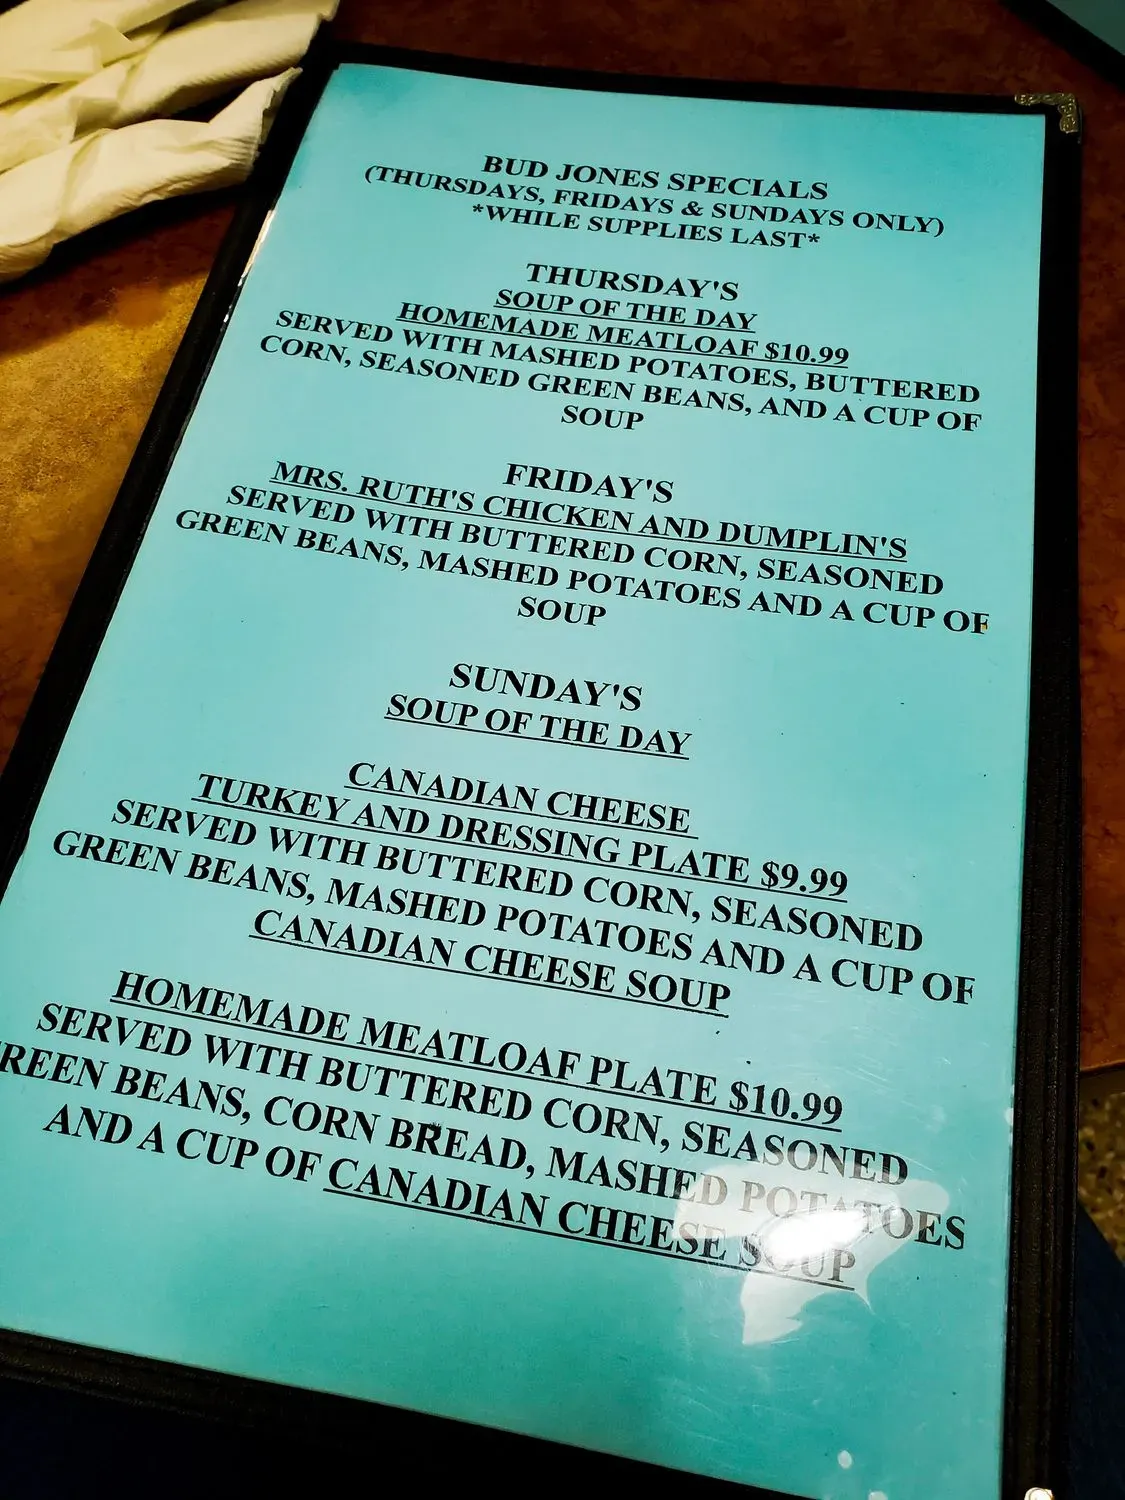 BUD JONES SPECIALS
(THURSDAYS, FRIDAYS & SUNDAYS ONLY)
*WHILE SUPPLIES LAST*
THURSDAY'S
SOUP OF THE DAY
HOMEMADE MEATLOAF $10.99
SERVED WITH MASHED POTATOES, BUTTERED
CORN, SEASONED GREEN BEANS, AND A CUP OF
SOUP
FRIDAY'S
MRS. RUTH'S CHICKEN AND DUMPLIN'S
SERVED WITH BUTTERED CORN, SEASONED
GREEN BEANS, MASHED POTATOES AND A CUP OF
SOUP
SUNDAY'S
SOUP OF THE DAY
CANADIAN CHEESE
TURKEY AND DRESSING PLATE $9.99
SERVED WITH BUTTERED CORN, SEASONED
GREEN BEANS, MASHED POTATOES AND A CUP OF
CANADIAN CHEESE SOUP
HOMEMADE MEATLOAF PLATE $10.99
SERVED WITH BUTTERED CORN, SEASONED
REEN BEANS, CORN BREAD, MASHED POTATOES
AND A CUP OF CANADIAN CHEESE SOUP